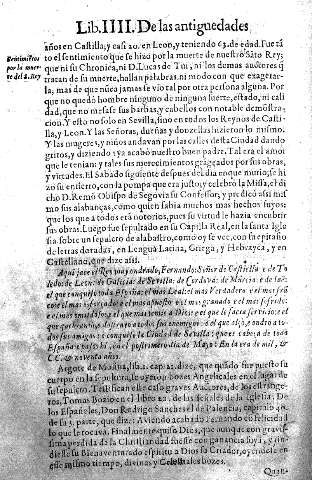 Lib. IIII. De las antiguedades
Sentimiẽtos
por la muer-
te del S. Rey
años en Castilla, y casi 20. en Leon, y teniendo 63. de edad. Fue tã
to el sentimiento que se hizo por la muerte de nuestro Sãto Rey;
que ni su Chronica, ni D. Lucas de Tui, ni los demas auctores q̃
tratan de su muerte, hallan palabras, ni modo con que exagetar-
la; mas de que nũca jamas se vio tal por otra persona alguna. Por
que no quedò hombre ninguno de ninguna fuerte, estado, ni cali
dad, que no mesasse sus barbas, y cabellos con notable demostra-
cion. Y esto no solo en Sevilla, sino en todos los Reynos de Casti-
lla, y Leon. Y las Señoras, dueñas y donzellas hizieron lo mismo.
Y las mugeres, y niños andavan por las calles desta Ciudad dando
gritos, y diziendo; ya acabò nuestro buen padre. Tal era el amor
que le tenian: y tales sus merecimientos grãgeados por sus obras,
y virtudes. El Sabado siguiente despues del dia en que murio, se hi
zo su entierro, con la pompa que era justo; y celebrò la Missa, el di
cho D. Remõ Obispo de Segovia su Confessor; y predicò assi mis
mo sus alabanças, como quien sabia muchos mas hechos suyos:
que los que a todos erã notorios, pues su virtud le hazia encubrir
sus obras. Luego fue sepultado en su Capilla Real, en la santa Igle
sia sobre un sepulcro de alabastro, como oy se vee, con su epitafio
de letras doradas, en Lengua Latina, Griega, y Hebrayca, y en
Castellano, que dize assi.
Aqui jace el Rey muy ondrado, Fernando: Señor de Castiella è de To
ledo: de Leon: de Galicia: de Sevilla: de Cordova: de Murcia: è de Jaẽ:
el que conquisò toda España: el mas Leal: el mas Verdadero: è el mas frã
co: è el mas esforçado: è el mas apuesto: è el mas granado: è el mas sofrido:
è el mas omildoso: è el que mas temie à Dios: è el que le facia servicio: è el
que quebrantò è destruyò à todos sus enemigos: è el que alçò, è ondrò à to
dos sus amigos: è conquisò la Ciudad de Sevilla; que es cabeça de toda
España: è passò hi, en el postrimero dia de Mayo: En la era de mil, è
CC. è noventa años.
Argote de Molina, lib. 1. cap. 21. dize, que quãdo fue puesto su
cuerpo en la sepultura, se oyeron vozes Angelicales en el lugar de
su sepulcro. Testifican este caso graves Auctores, de los estrange-
ros, Tomas Bozio en el libro de las señales de la Iglesia, De
los Españoles, Don Rodrigo Sanchez el de Palencia, capitulo 40.
de su 3. parte, que dize: Aviendo acabado
lo que le tocava. Finalmente que su Dios, que aunque con gravis-
sima perdida de la Christiandad fuesse con ganancia suya, y rin-
diesse su Bienaventurado espiritu a Dios su Criador, oyendose en
esse mismo tiempo, divinas y Celestiales bozes.
Quan-